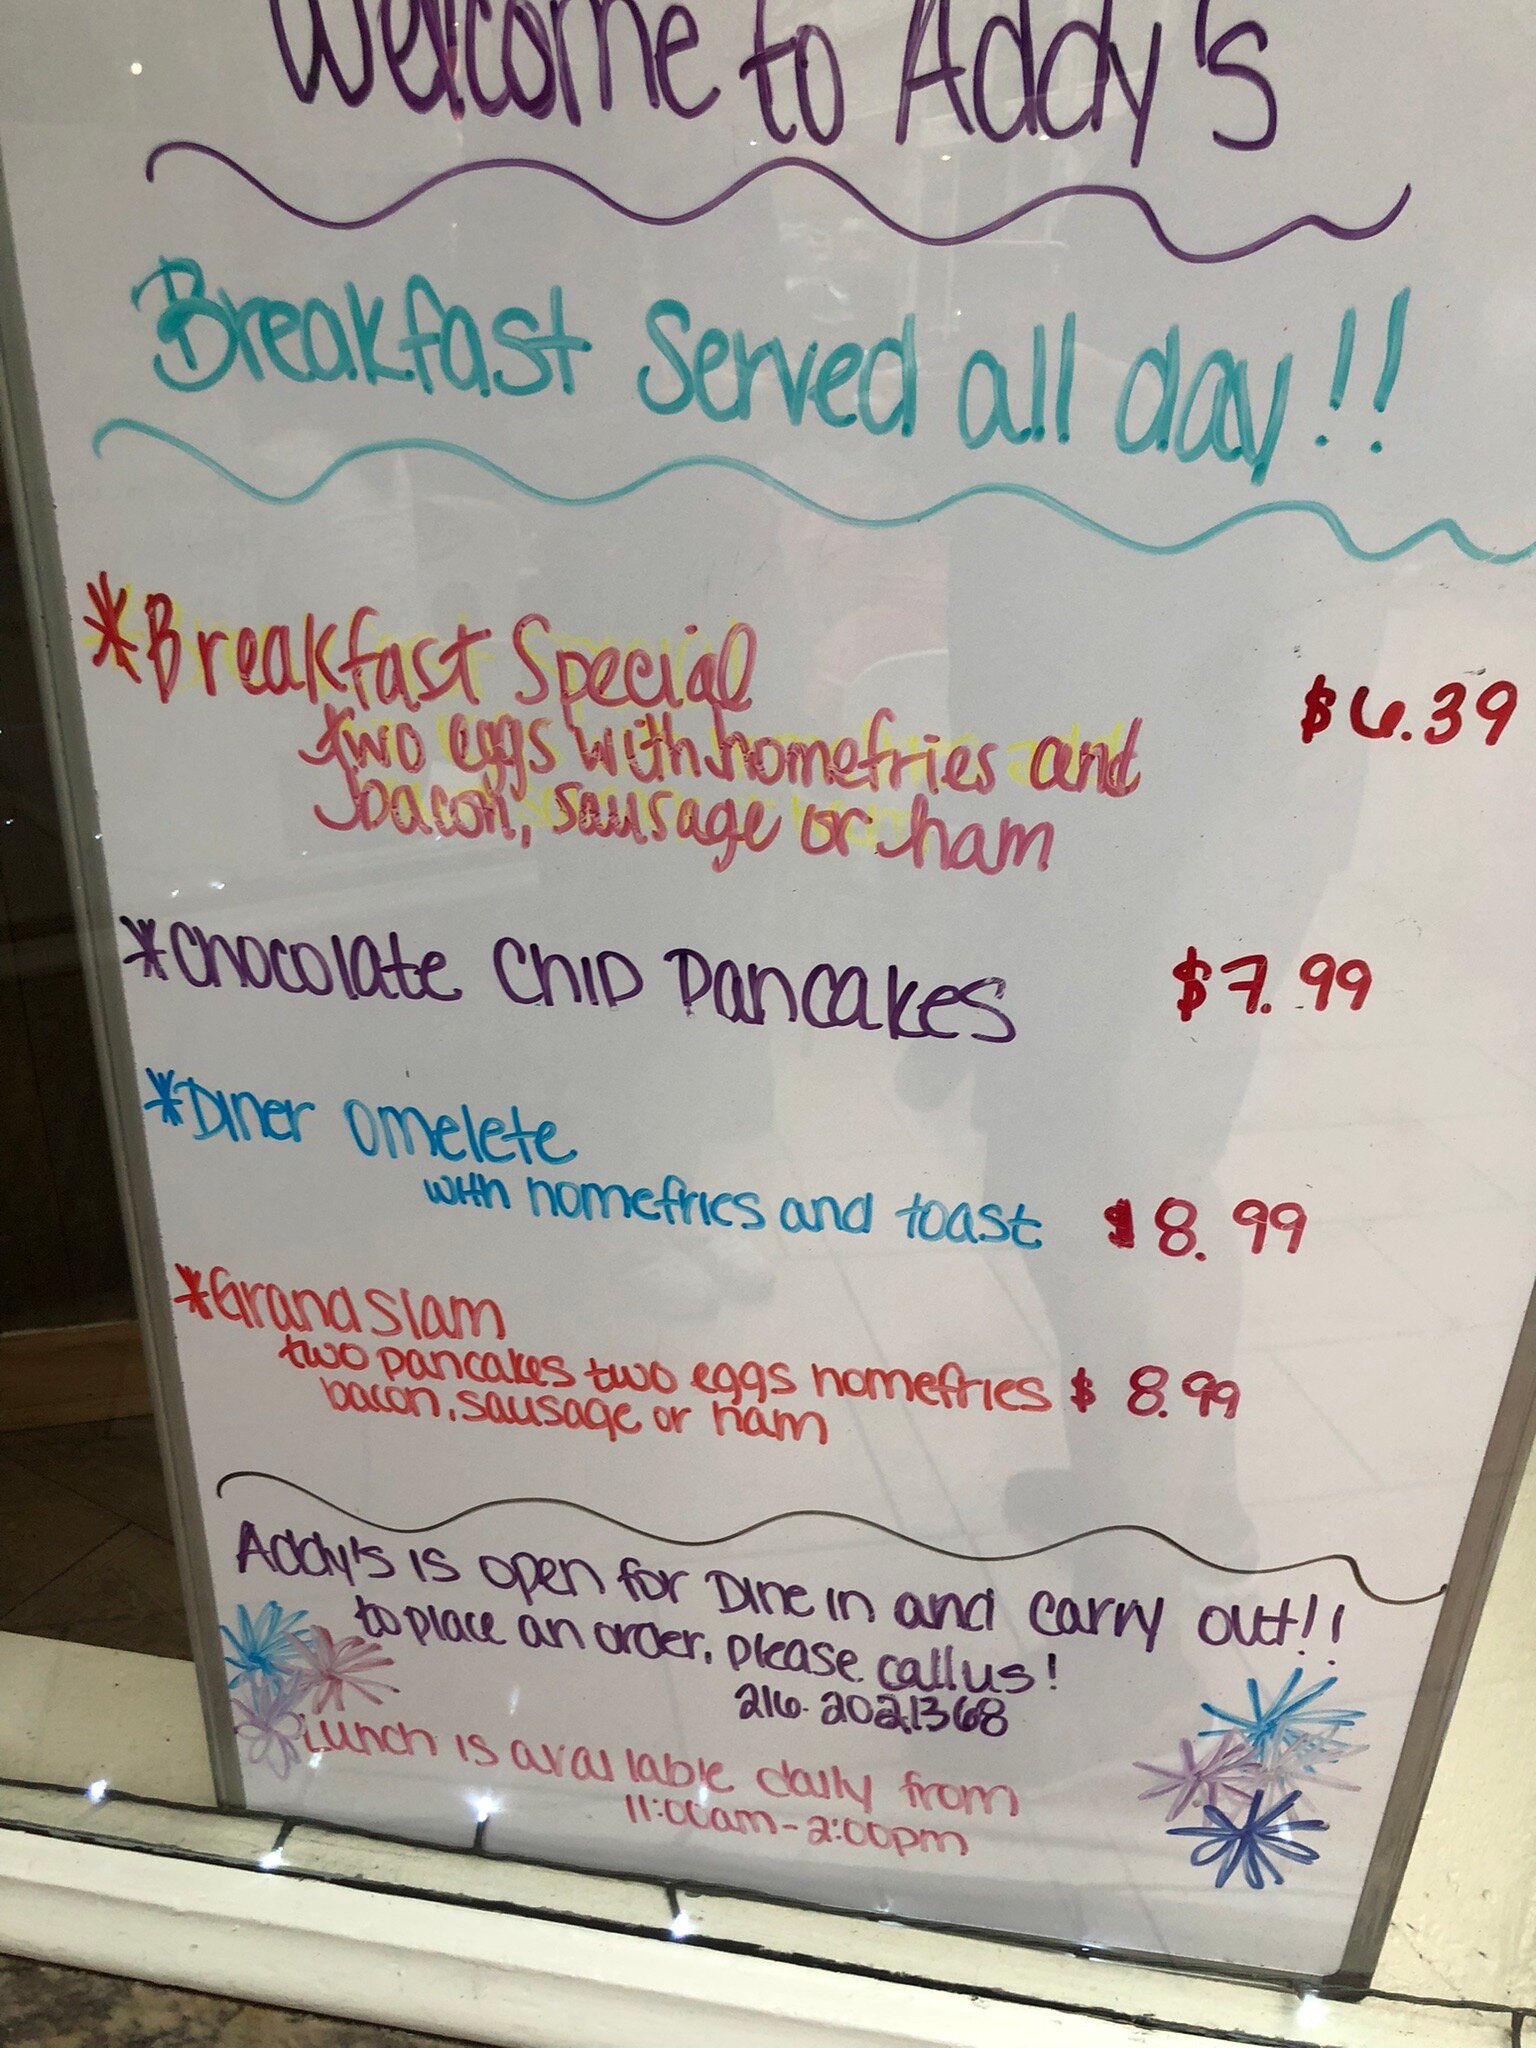 Welcome to Addy's
Breakfast Served all day!!
*Breakfast Special
two eggs with homefries and $6.39
bacon, sausage or ham
*Chocolate Chip Pancakes $7.99
*Diner omelete
with homefries and toast $8.99
*Grand Slam
two pancakes two eggs homefries $8.99
bacon, sausage or ham
Addy's is open for Dine in and carry out!!
to place an order, please call us!
216.202.1368
Lunch is available daily from
11:00am-2:00pm